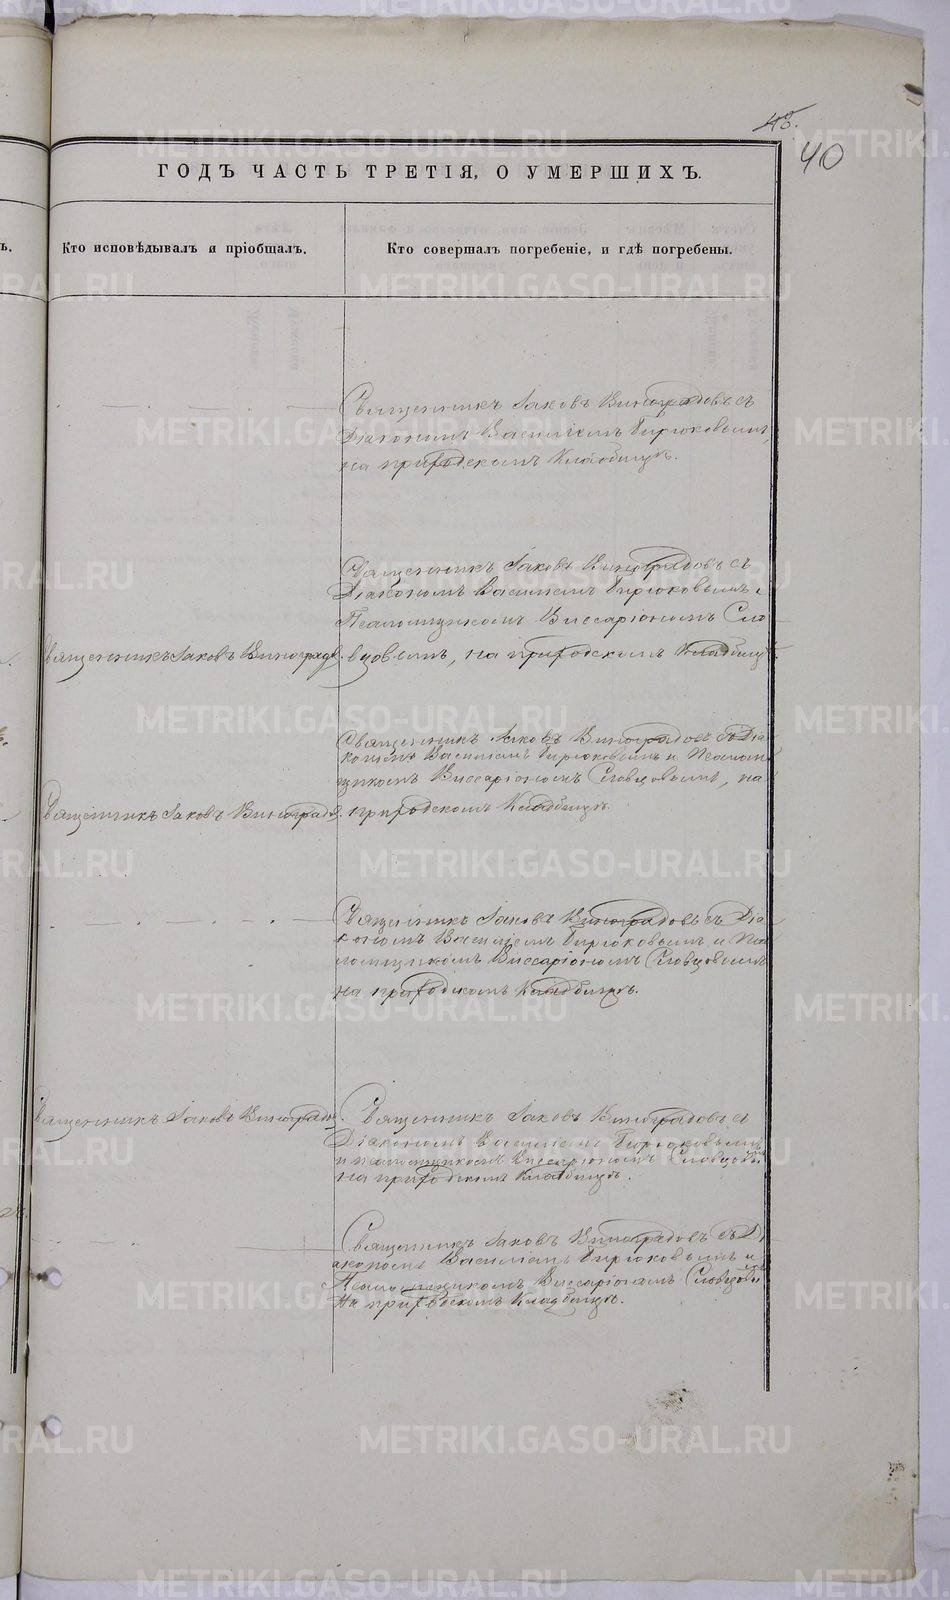 43.
40
ГОДЪ ЧАСТЬ ТРЕТІЯ, О УМЕРШИХЪ.
Кто исповѣдывалъ и пріобщалъ.
Кто совершалъ погребеніе, и гдѣ погребены.
Священникъ Іаковъ Виноградовъ съ
Діакономъ Василіемъ Бирюковымъ,
на приходскомъ кладбищѣ.
Священникъ Іаковъ Виноградовъ съ
Діакономъ Василіемъ Бирюковымъ и
Псаломщикомъ Виссаріономъ Сло
Священникъ Іаковъ Виноградов.
вцовымъ, на приходскомъ кладбищѣ.
Священникъ Іаковъ Виноградовъ съ Діа
кономъ Василіемъ Бирюковымъ и Псалом
щикомъ Виссаріономъ Словцовымъ, на
Священникъ Іаковъ Виноградов.
приходскомъ кладбищѣ.
Священникъ Іаковъ Виноградовъ съ Діа
кономъ Василіемъ Бирюковымъ и Пса
ломщикомъ Виссаріономъ Словцовымъ
на приходскомъ кладбищѣ.
Священникъ Іаковъ Виноградов.
Священникъ Іаковъ Виноградовъ съ
Діакономъ Василіемъ Бирюковымъ
и псаломщикомъ Виссаріономъ Словцовымъ
на приходскомъ кладбищѣ.
Священникъ Іаковъ Виноградовъ съ Ді
акономъ Василіемъ Бирюковымъ и
Псаломщикомъ Виссаріономъ Словцовымъ
на приходскомъ кладбищѣ.
METRIKI.GASO-URAL.RU